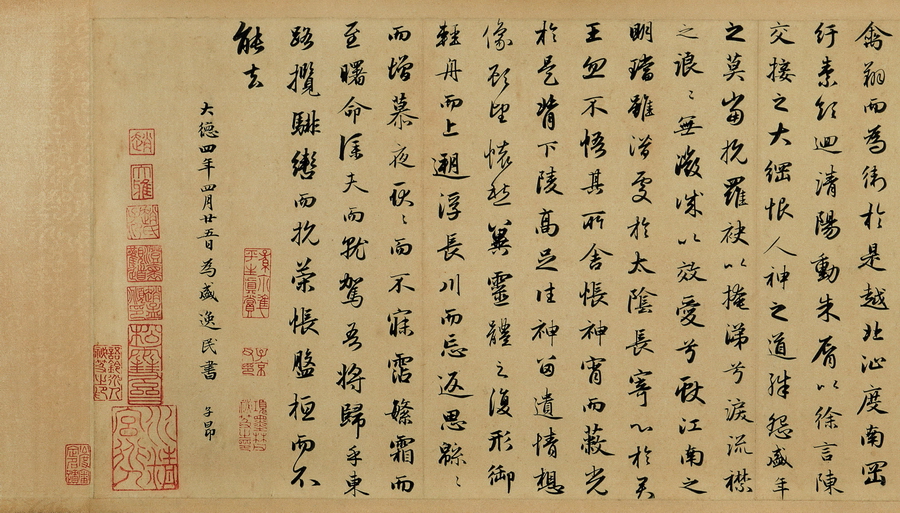 禽翔而為衛於是越北沚度南岡
紆素領迴清陽動朱脣以徐言陳
交接之大綱恨人神之道殊怨盛年
之莫當抗羅袂以掩涕兮淚流襟
之浪〻無微誠以效愛兮獻江南之
明璫雖潛處於太陰長寄心於君
王忽不悟其所舍悵神宵而蔽光
於是背下陵高足往神留遺情想
像顧望懷愁冀靈體之復形御
輕舟而上遡浮長川而忘返思緜〻
而增慕夜耿〻而不寐霑繁霜而
至曙命僕夫而就駕吾將歸乎東
路攬騑轡而抗策悵盤桓而不
能去
大德四年四月廿五日為盛逸民書 子昂
趙
大雅